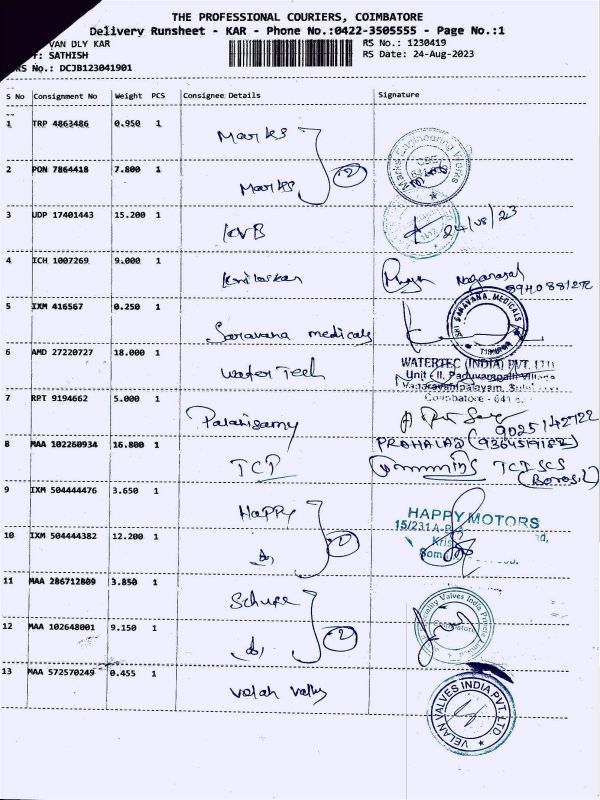 THE PROFESSIONAL COURIERS, COIMBATORE
Delivery Runsheet - KAR - Phone No.:0422-3505555 - Page No.:1
VAN DLY KAR
RS No.: 1230419
: SATHISH
RS Date: 24-Aug-2023
RS No.: DCJB123041901
S No Consignment No Weight PCS Consignee Details Signature
1 TRP 4863486 0.950 1 Marks
2 PON 7864418 7.800 1 Marks 2
Marks Engineering Works
3 UDP 17401443 15.200 1 KVB 24/08/23
4 ICH 1007269 9.000 1 Nagarajal
8940881272
5 IXM 416567 0.250 1 Saravana medicals
SRI SARAVANA MEDICALS
TIRUPUR
6 AMD 27220727 18.000 1 Water Tech
WATERTEC (INDIA) PVT. LTD
Unit - II, Paduvampalli Village
Coimbatore - 641
7 RPT 9194662 5.000 1 Palanisamy
9025142722
8 MAA 102260934 16.800 1 TCP
PRAHALAD
TCI SCS
(Borosil)
9 IXM 504444476 3.650 1 Happy
HAPPY MOTORS
15/231 A-B
10 IXM 504444382 12.200 1 2
11 MAA 286712809 3.850 1
Valves India Private
Coimbatore
12 MAA 102648001 9.150 1 2
13 MAA 572570249 0.455 1 Velan
VELAN VALVES INDIA PVT. LTD